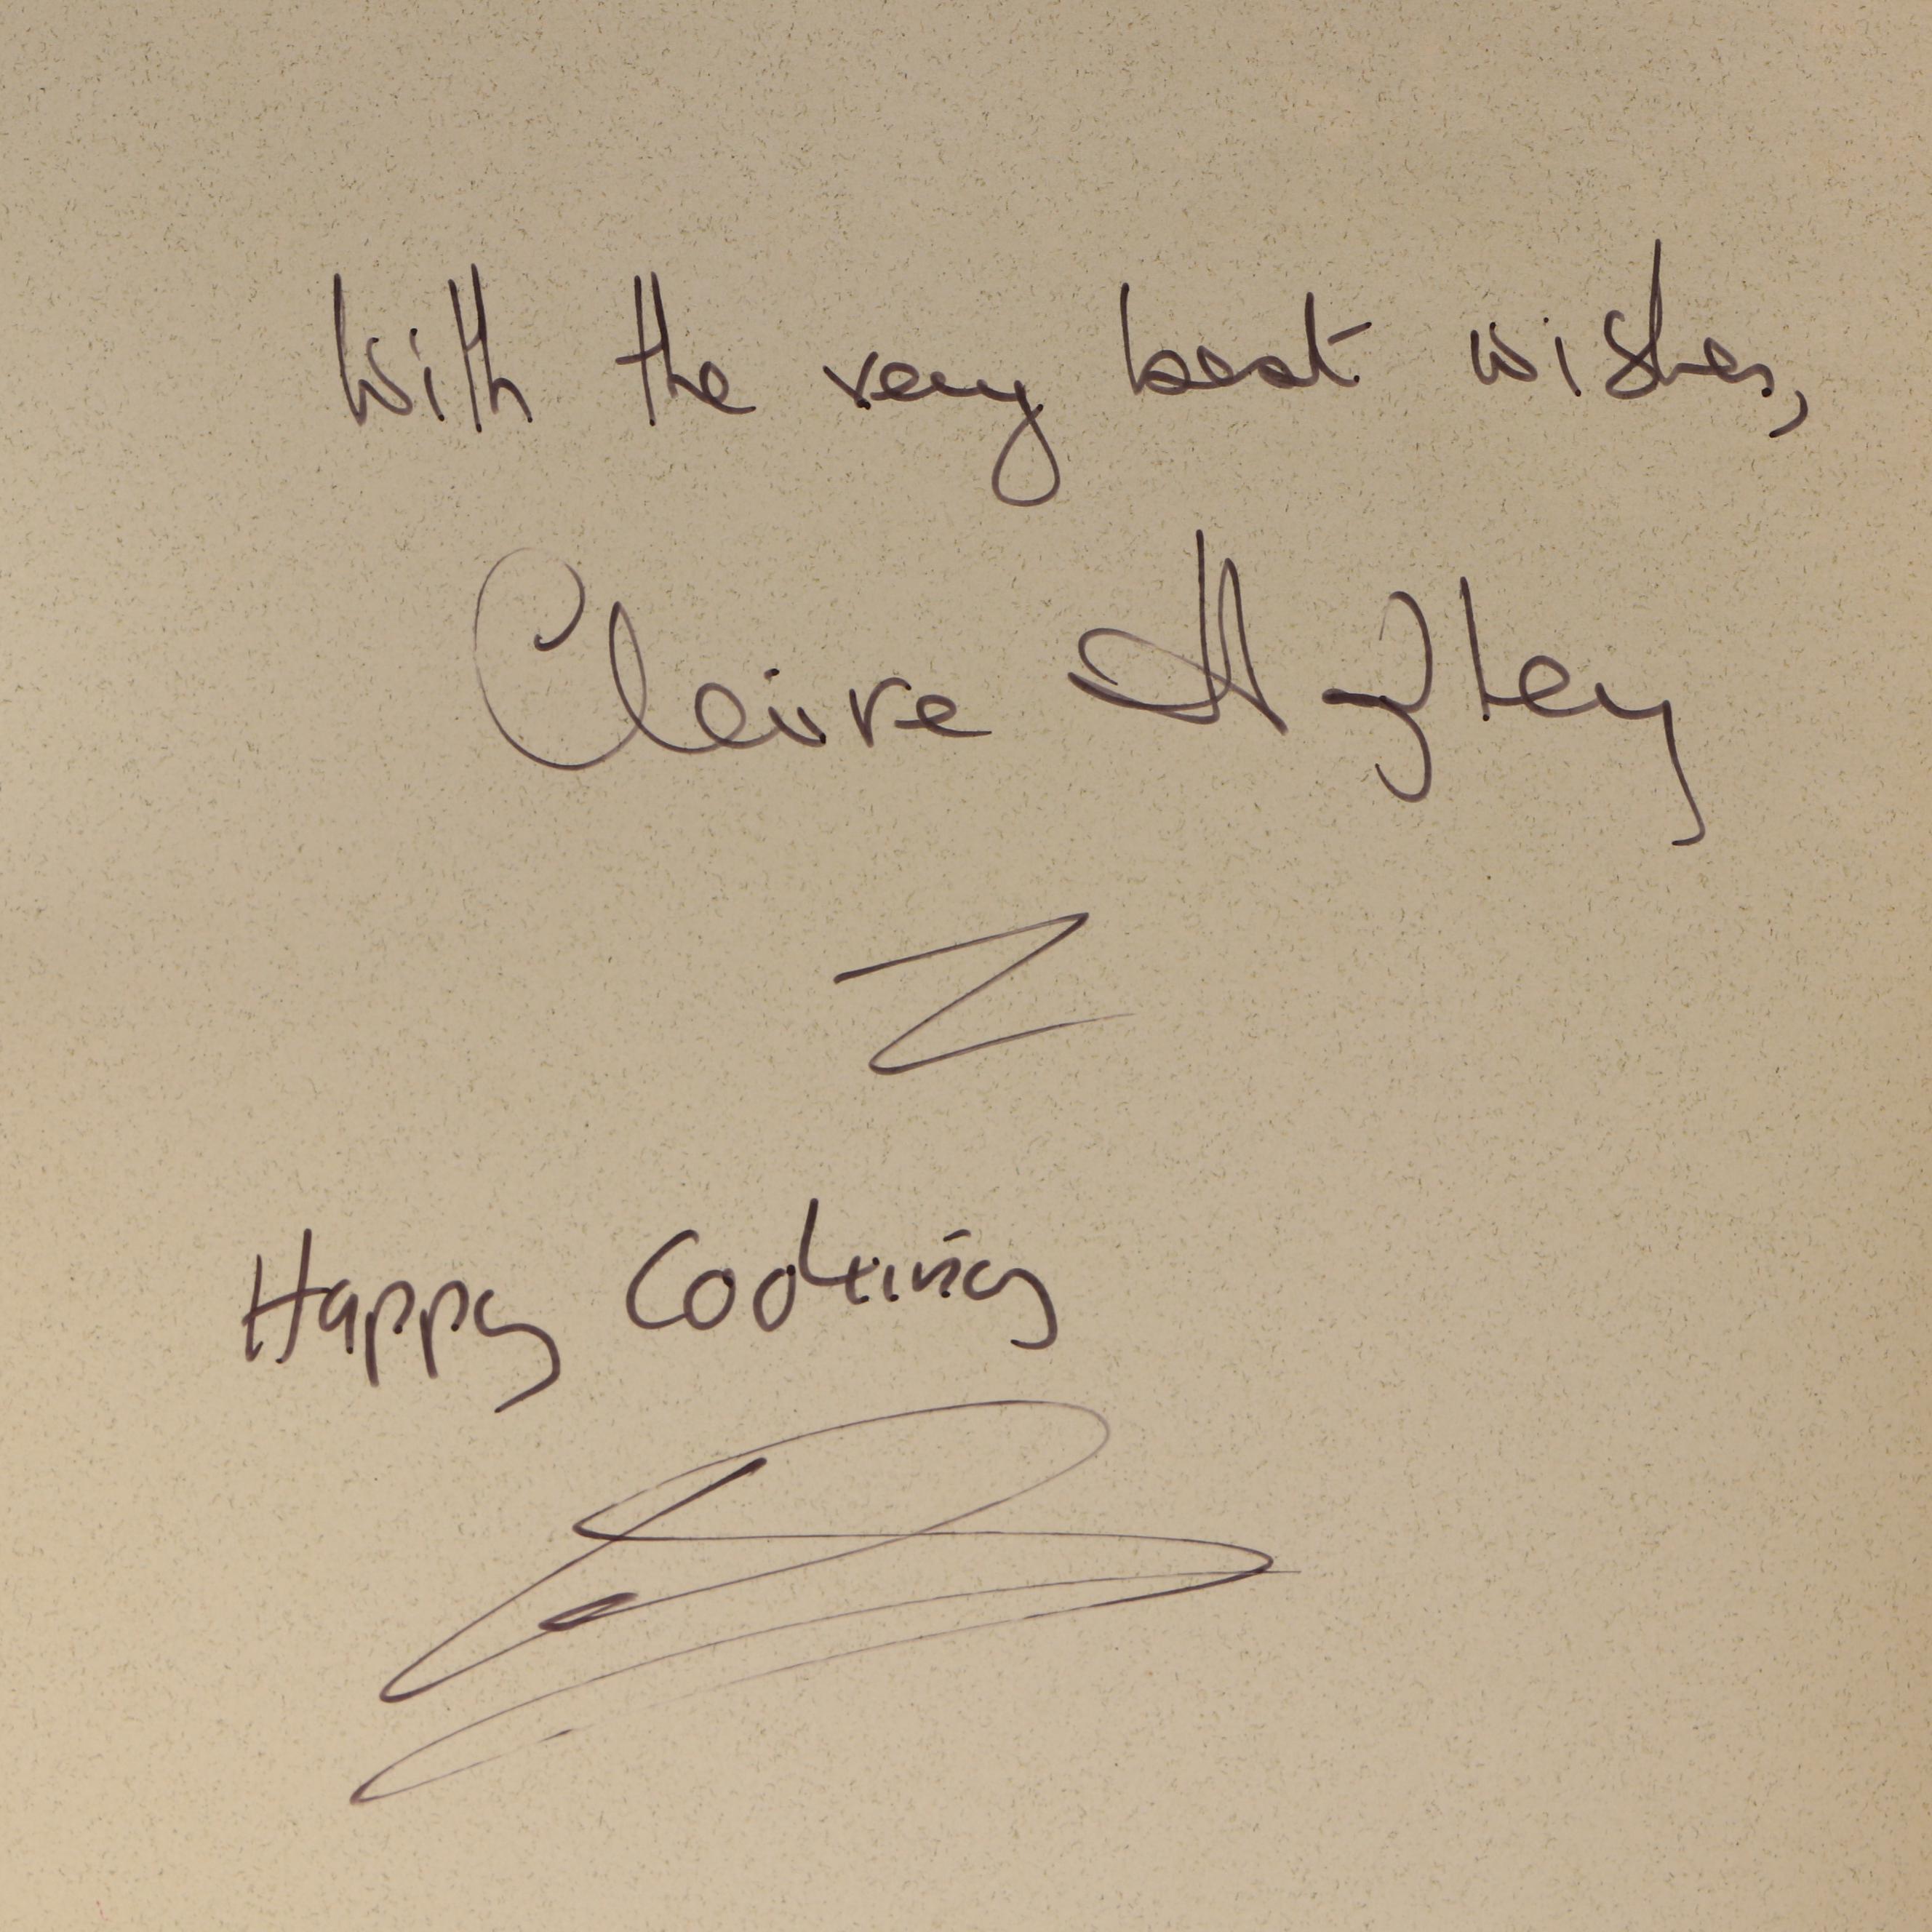 With the very best wishes,
Claire
Happy Cooking